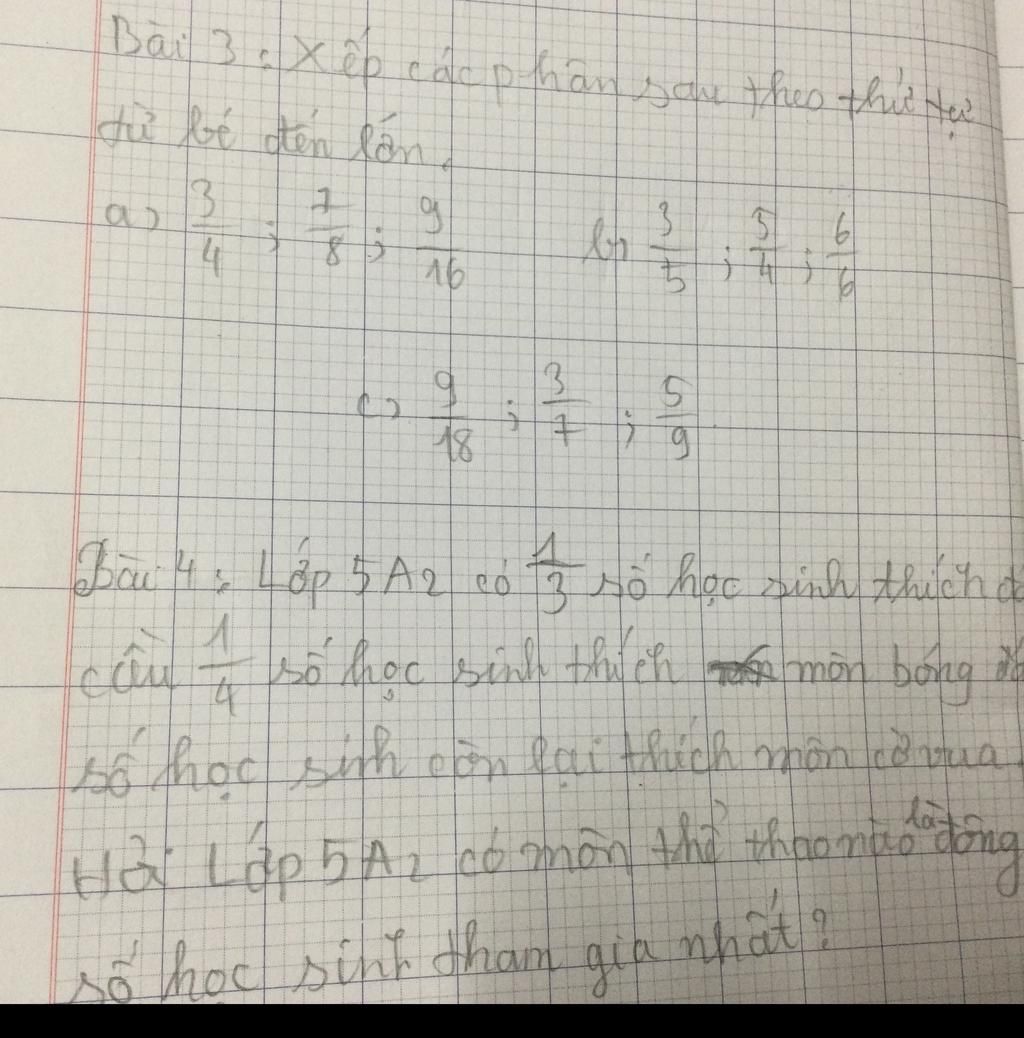 Bài 3: Xếp các phân sau theo thứ tự
từ bé đến lớn.
a) 3/4 ; 7/8 ; 9/16 b) 3/5 ; 5/4 ; 6/6
c) 9/18 ; 3/7 ; 5/9
Bài 4: Lớp 5A2 có 1/3 số học sinh thích
cầu 1/4 số học sinh thích môn bóng
số học sinh còn lại thích môn cờ vua
Hỏi Lớp 5A2 có môn thể thao nào là đông
số học sinh tham gia nhất?